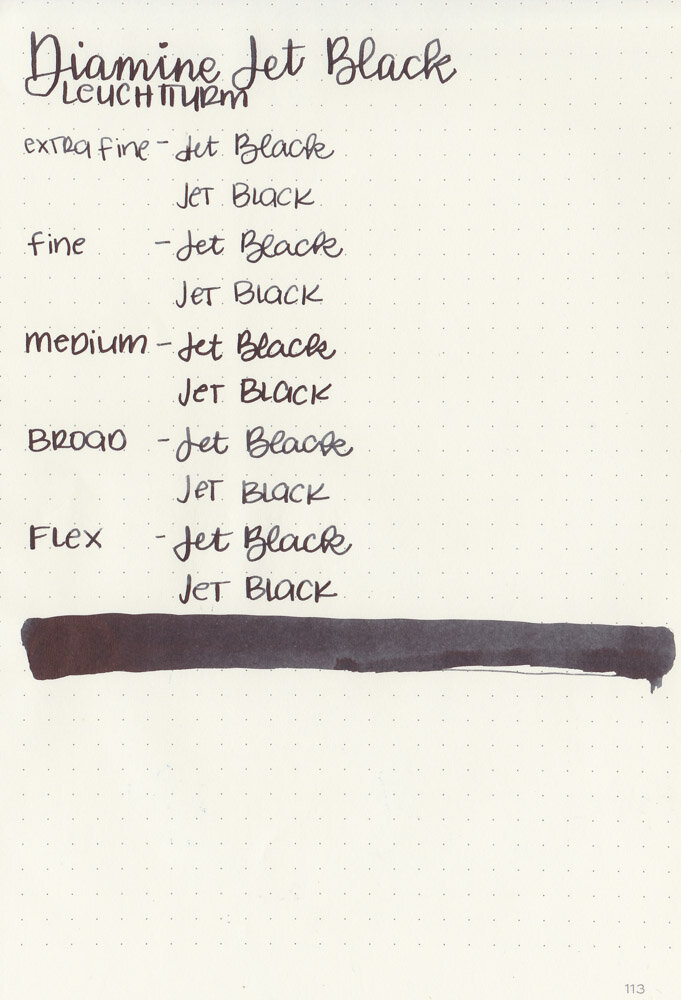 Diamine Jet Black
LEUCHTTURM
extra fine - Jet Black
JET BLACK
fine - Jet Black
JET BLACK
medium - Jet Black
JET BLACK
BROAD - Jet Black
JET BLACK
FLEX - Jet Black
JET BLACK
113